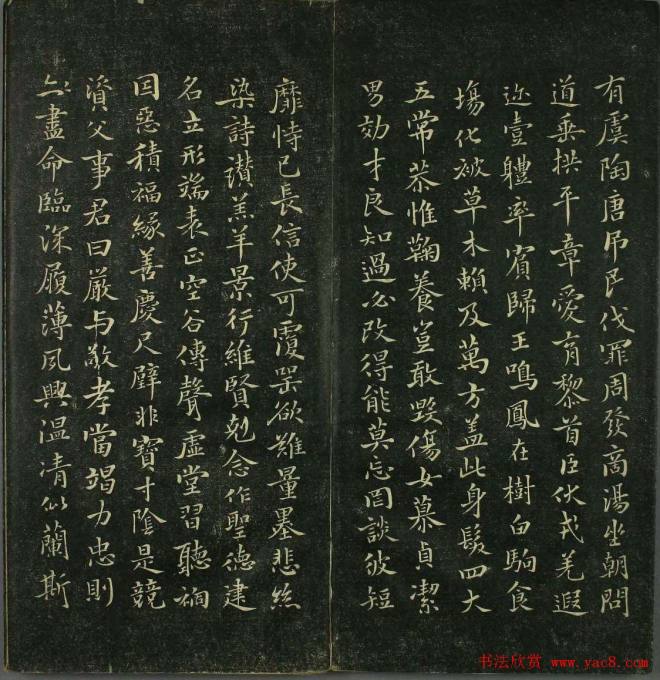 有虞陶唐吊民伐罪周發商湯坐朝問
道垂拱平章愛育黎首臣伏戎羌遐
迩壹體率賓歸王鳴鳳在樹白駒食
場化被草木賴及萬方盖此身髮四大
五常恭惟鞠養豈敢毀傷女慕貞潔
男効才良知過必改得能莫忘罔談彼短
靡恃己長信使可覆器欲難量墨悲絲
染詩讃羔羊景行維賢剋念作聖德建
名立形端表正空谷傳聲虛堂習聽禍
因惡積福緣善慶尺璧非寶寸陰是競
資父事君曰嚴与敬孝當竭力忠則
盡命臨深履薄夙興温凊似蘭斯
书法欣赏 www.yac8.com